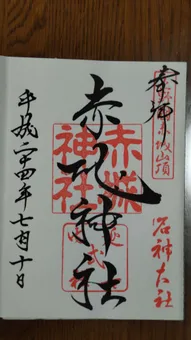 奉拝
名神大社
赤城神社
赤城神社
平成二十四年七月十日